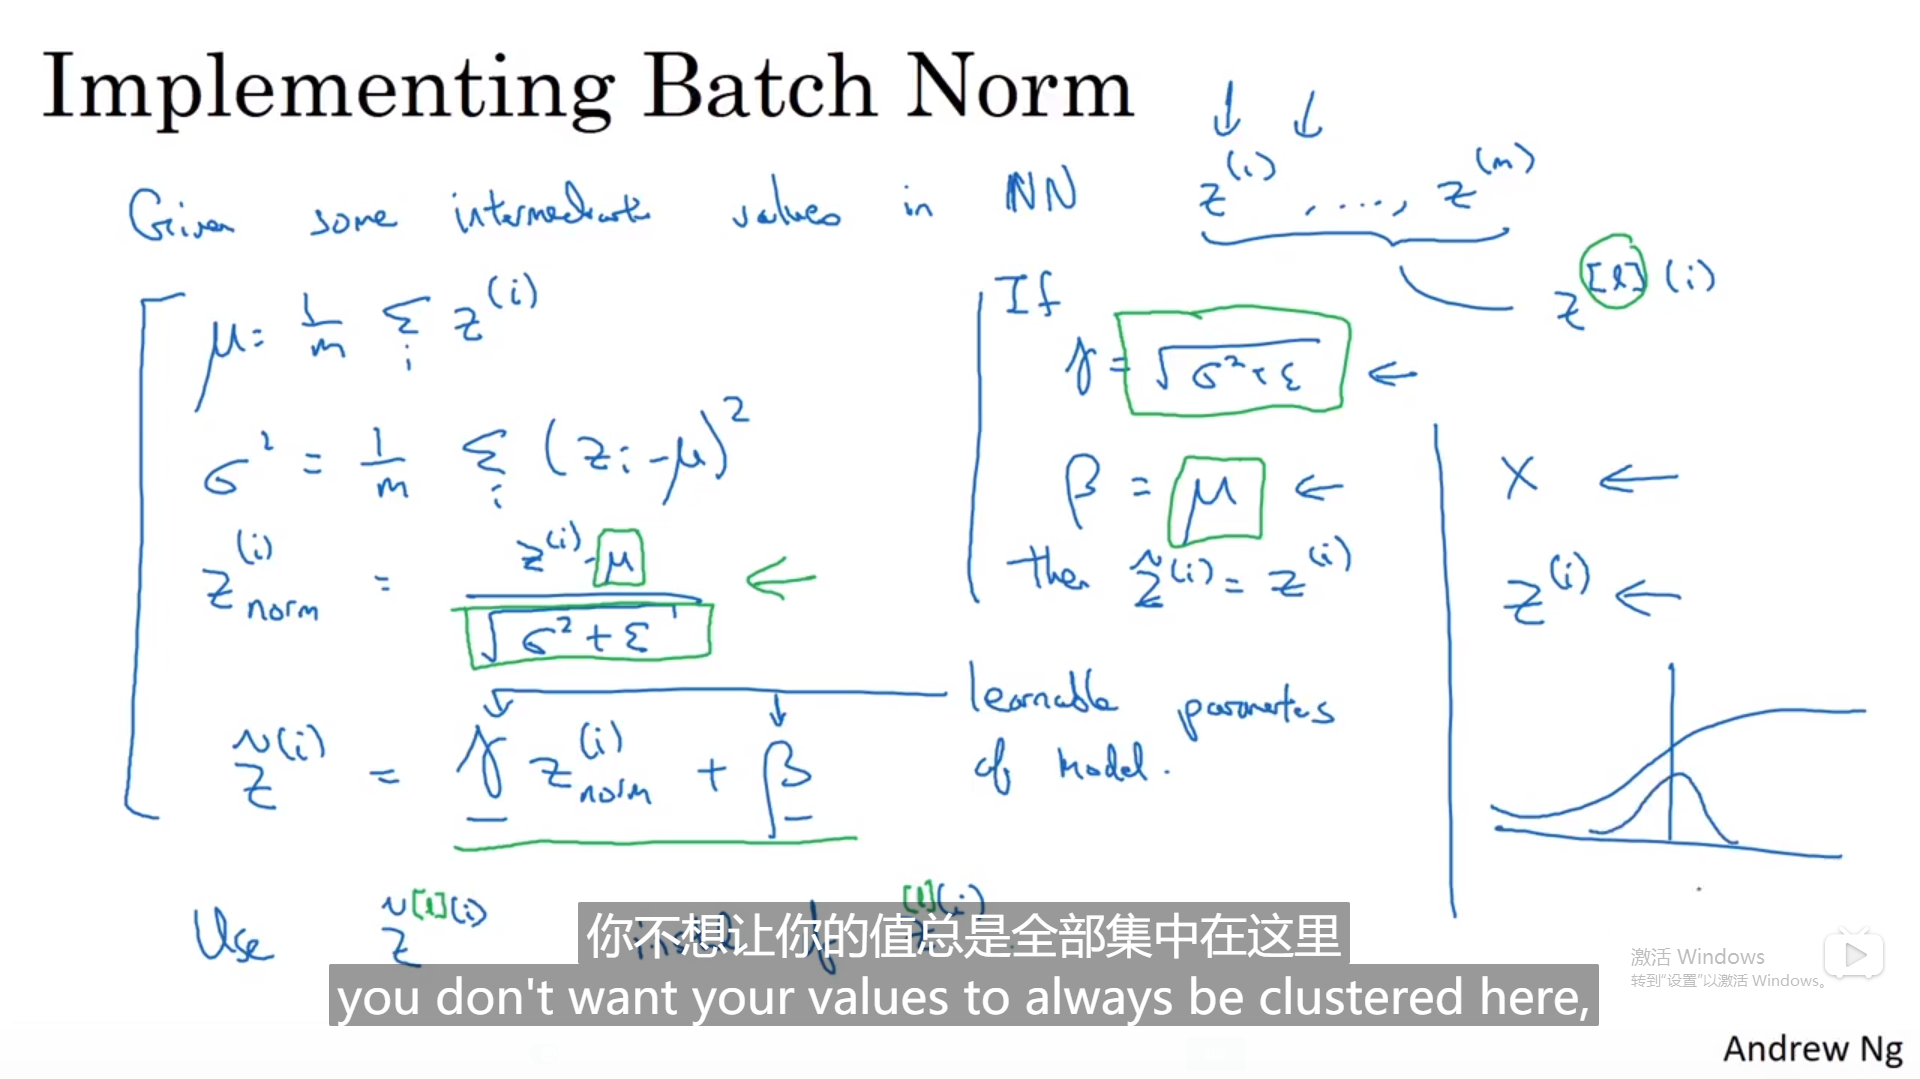 Implementing Batch Norm
Given some intermediate values in NN z^(i) , ...., z^(m)
z^[l](i)
μ = 1/m Σ_i z^(i)
σ² = 1/m Σ_i (z_i - μ)²
z_norm^(i) = (z^(i) - μ) / √(σ² + ε)
z̃^(i) = γ z_norm^(i) + β
If
γ = √(σ² + ε) ←
β = μ ←
then z̃^(i) = z^(i)
learnable parameters
of model.
X ←
z^(i) ←
Use z̃^[l](i) z^[l](i)
你不想让你的值总是全部集中在这里
you don't want your values to always be clustered here,
激活 Windows
转到“设置”以激活 Windows。
Andrew Ng